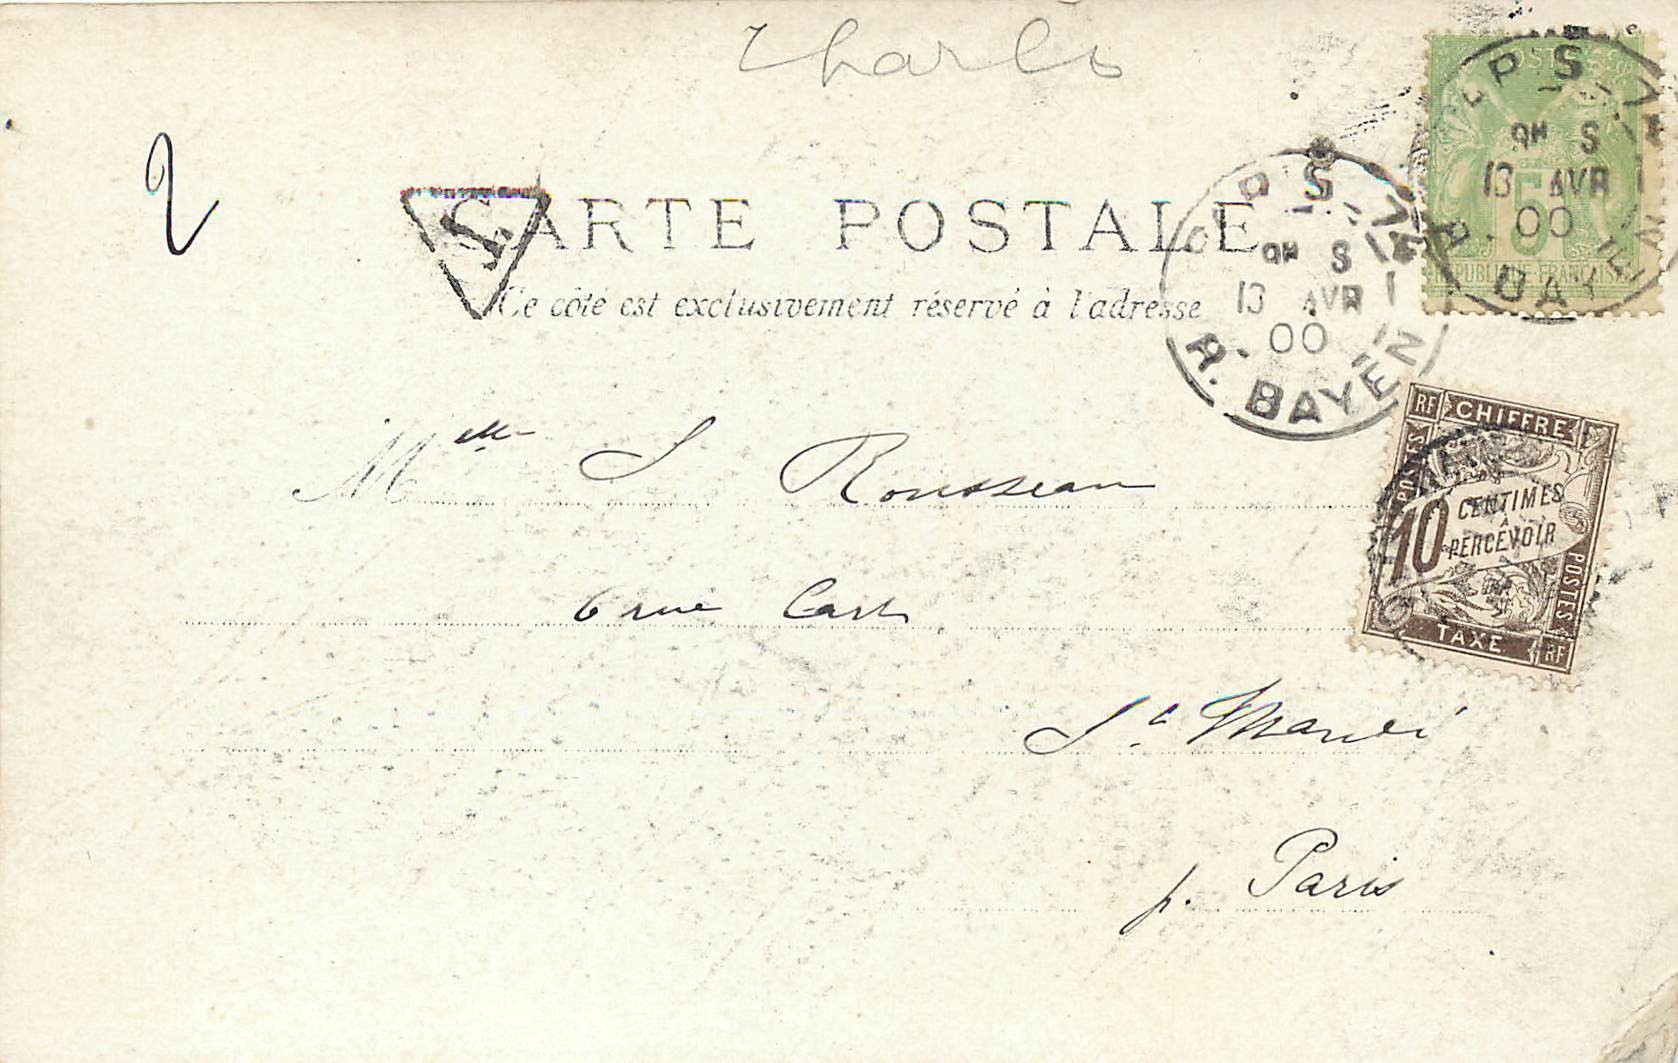 Charles
2
CARTE POSTALE
T
Ce côté est exclusivement réservé à l'adresse
POSTES
5
REPUBLIQUE FRANÇAISE
9H S
13 AVR
00
R. BAYEN
9H S
13 AVR
00
R. BAYEN
Melle S Rousseau
RF CHIFFRE
POSTES
10 CENTIMES
À
PERCEVOIR
POSTES
TAXE RF
6 rue Cart
St Mandé
p. Paris